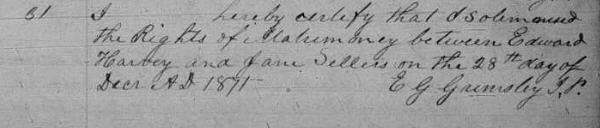 31 I hereby certify that I solemnised
the Rights of Matrimoney between Edward
Harvey and Jane Sellers on the 28th day of
Decr A.D 1871 E G Grimsley J.P.